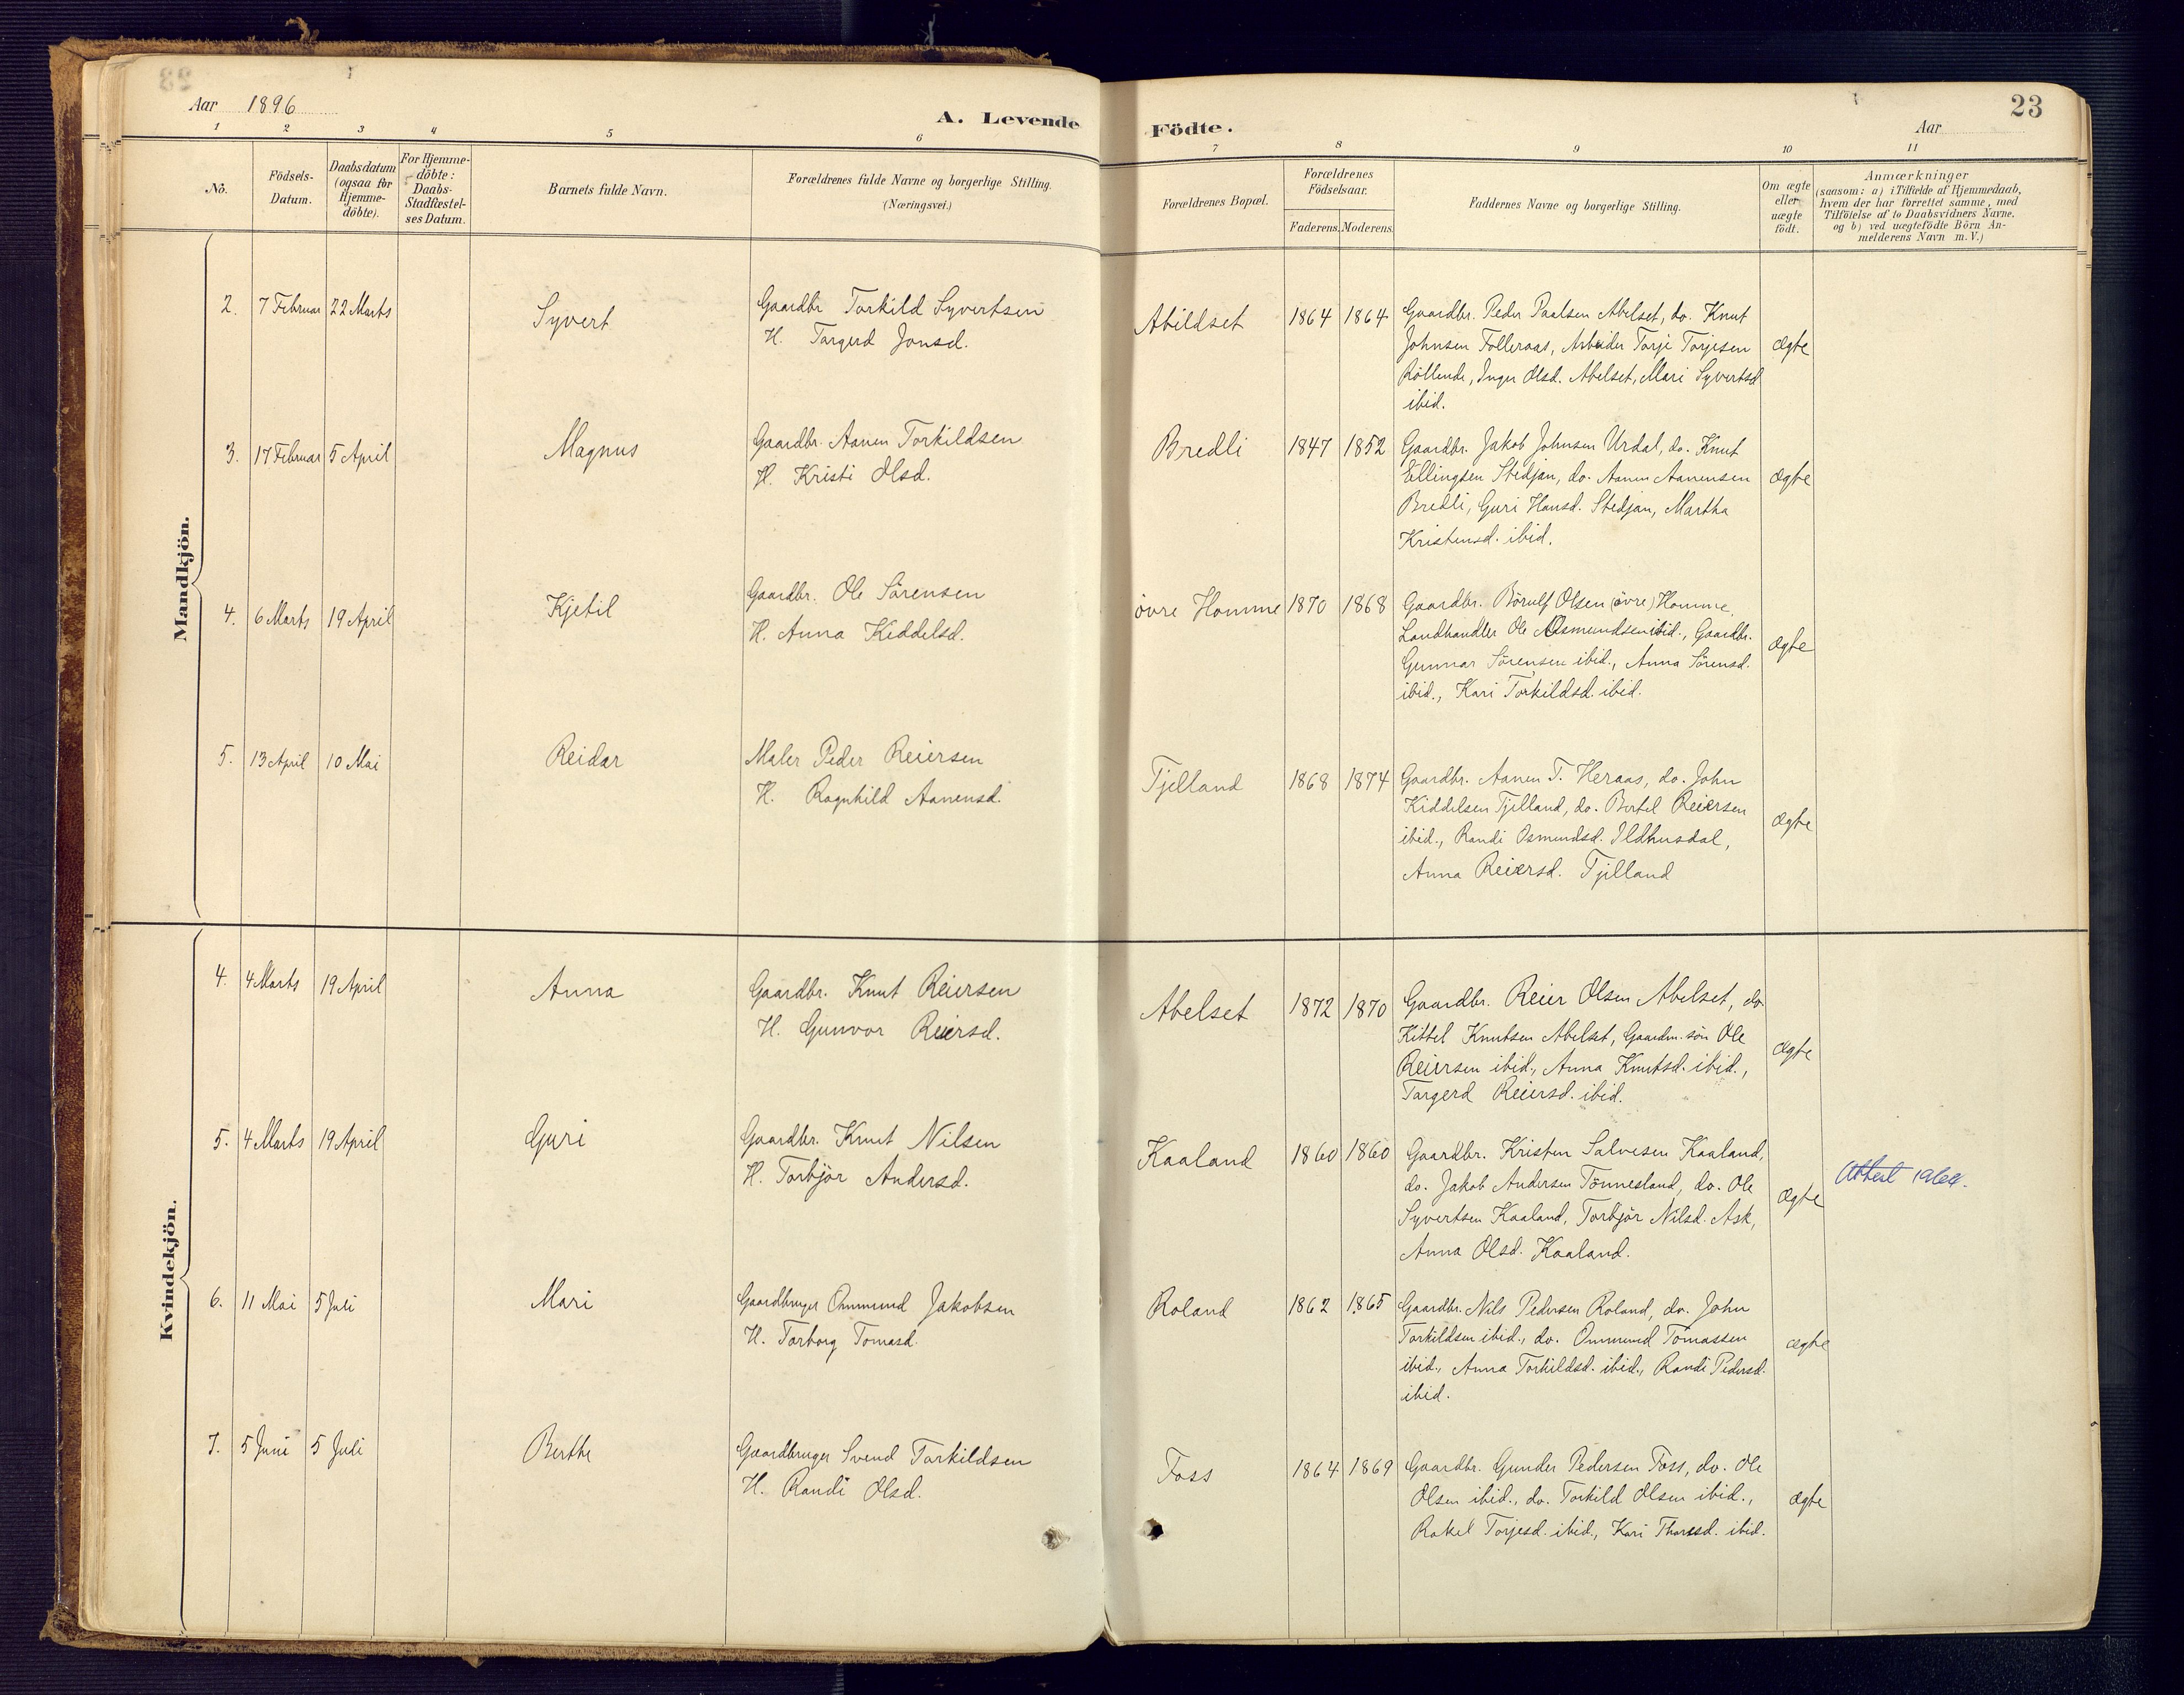 Aar 1896
A. Levende
1 2 3 4 5 6
No.
Födsels-
Datum.
Daabsdatum
(ogsaa for
Hjemme-
döbte).
For Hjemme-
döbte:
Daabs-
Stadfæstel-
ses Datum.
Barnets fulde Navn.
Forældrenes fulde Navne og borgerlige Stilling.
(Næringsvei.)
Mandkjön.
2. 7 Februar 22 Marts Syvert
Gaardbr Torkild Syvertsen
H. Targerd Jonsd.
3. 17 Februar 5 April Magnus
Gaardbr. Aanen Torkildsen
H. Kristi Olsd.
4. 6 Marts 19 April Kjetil
Gaardbr. Ole Sörensen
H. Anna Kiddelsd.
5. 13 April 10 Mai Reidar
Maler Peder Reiersen
H. Ragnhild Aanensd.
Kvindekjön.
4. 4 Marts 19 April Anna
Gaardbr. Knut Reiersen
H. Gunvor Reiersd.
5. 4 Marts 19 April Guri
Gaardbr. Knut Nilsen
H. Torbjör Andersd.
6. 11 Mai 5 Juli Mari
Gaardbruger Ommund Jakobsen
H. Torborg Tomasd.
7. 5 Juni 5 Juli Berthe
Gaardbruger Svend Torkildsen
H. Randi Olsd.
23
Födte.
Aar
7 8 9 10 11
Forældrenes Bopæl.
Forældrenes
Födselsaar.
Faderens. Moderens.
Faddernes Navne og borgerlige Stilling.
Om ægte
eller
uægte
födt.
Anmærkninger
(saasom: a) i Tilfælde af Hjemmedaab,
hvem der har forrettet samme, med
Tilföielse af to Daabsvidners Navne.
og b) ved uægtefödte Börn An-
melderens Navn m. V.)
Abildset 1864 1864
Gaardbr. Peder Paalsen Abelset, do. Knut
Johnsen Folleraas, Arbeider Torje Torjesen
Röllende, Inger Olsd. Abelset, Mari Syvertsd
ibid.
ægte
Bredli 1847 1852
Gaardbr. Jakob Johnsen Urdal, do. Knut
Ellingsen Stedjan, do. Aanen Aanensen
Bredli, Guri Hansd. Stedjan, Martha
Kristensd. ibid.
ægte
övre Homme 1870 1868
Gaardbr. Börulf Olsen (övre) Homme,
Landhandler Ole Osmundsen ibid., Gaardbr.
Gunnar Sörensen ibid., Anna Sörensd.
ibid., Kari Torkildsd. ibid.
ægte
Tjelland 1868 1874
Gaardbr. Aanen T. Heraas, do. John
Kiddelsen Tjelland, do. Bertel Reiersen
ibid., Randi Osmundsd. Ildhusdal,
Anna Reiersd. Tjelland
ægte
Abelset 1872 1870
Gaardbr. Reier Olsen Abelset, do.
Kittel Knutsen Abelset, Gaardm. sön Ole
Reiersen ibid., Anna Knutsd. ibid.,
Targerd Reiersd. ibid.
ægte
Kaaland 1860 1860
Gaardbr. Kristen Salvesen Kaaland,
do. Jakob Andersen Tönnesland, do. Ole
Syvertsen Kaaland, Torbjör Nilsd. Ask,
Anna Olsd. Kaaland.
ægte
Attest
Roland 1862 1865
Gaardbr. Nils Pedersen Roland, do. John
Torkildsen ibid., do. Ommund Tomassen
ibid., Anna Torkildsd. ibid., Randi Pedersd.
ibid.
ægte
Foss 1864 1869
Gaardbr. Gunder Pedersen Foss, do. Ole
Olsen ibid., do. Torkild Olsen ibid.,
Rakel Torjesd. ibid., Kari Thoresd. ibid.
ægte